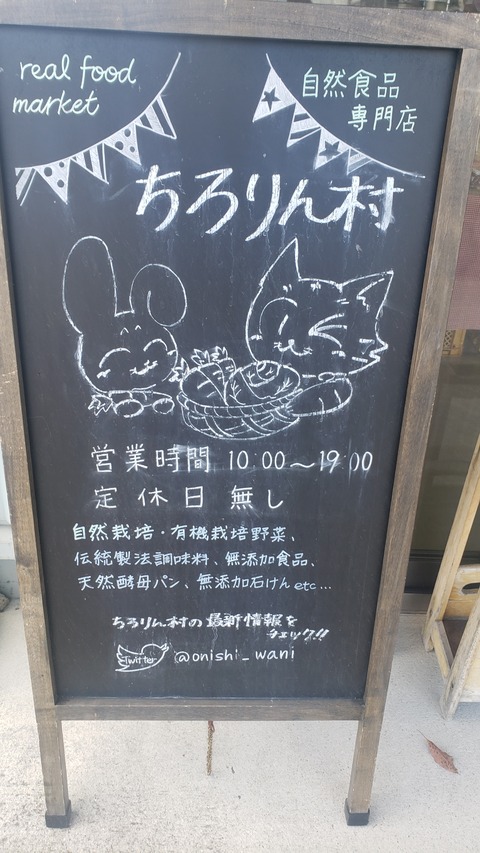 real food
market
自然食品
専門店
ちろりん村
営業時間 10:00〜19:00
定休日 無し
自然栽培・有機栽培野菜、
伝統製法調味料、無添加食品、
天然酵母パン、無添加石けんetc...
ちろりん村の最新情報を
チェック!!
Twitter @onishi_wani